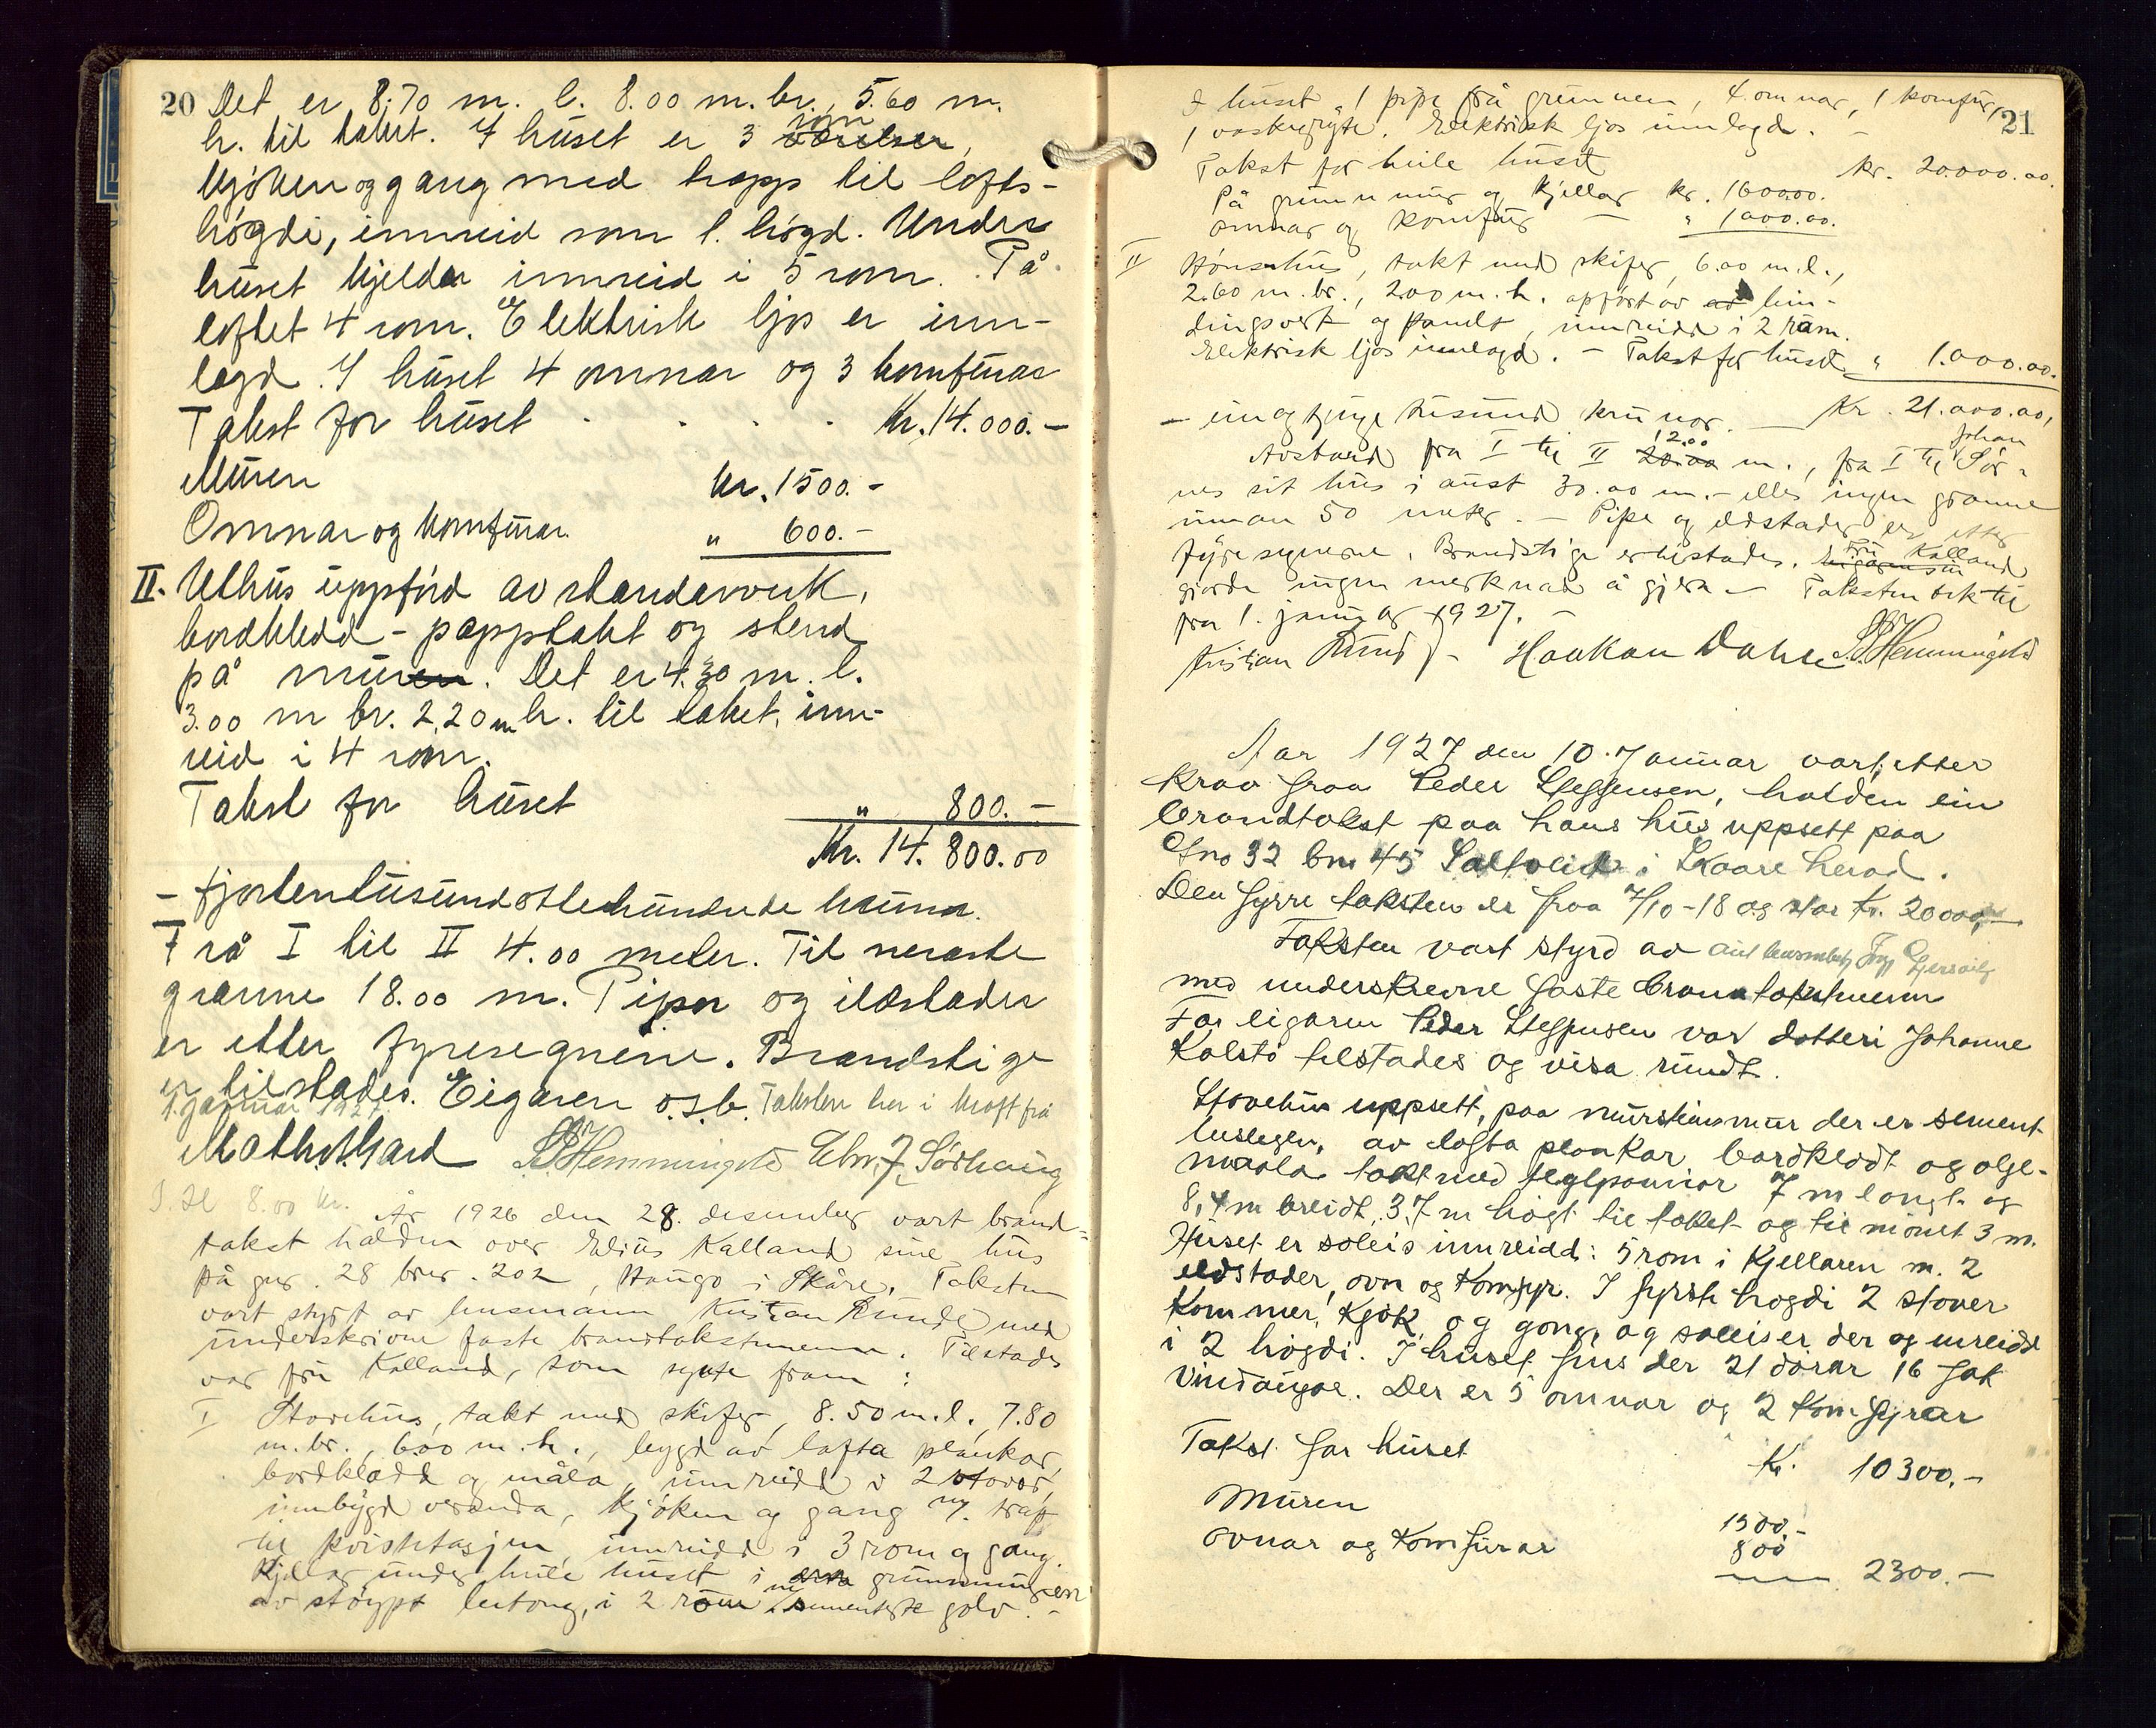 20 Det er 8.70 m. l. 8.00 m. br. 5.60 m.
h. til taket. I huset er 3 værelser rom,
kjöken og gang med trapp til lofts-
högdi, innreid som 1. högd. Under
huset kjeldar innreid i 5 rom. På
loftet 4 rom. Elektrisk ljos er inn-
lagd. I huset 4 omnar og 3 komfurar
Takst for huset . . . . Kr. 14.000.-
Muren kr. 1500.-
Omnar og komfurar. " 600.-
II. Uthus uppförd av standarverk,
bordkledd - papptekt og stend
på muren. Det er 4.30 m. l.
3.00 m br. 2,20 m h. til taket, inn-
reid i 4 rom.
Takst for huset " 800.-
Kr. 14.800.00
- fjortentusundottehundrede kruna.
Frå I til II 4.00 meter. Tilneraste
granne 18.00 m. Piper og ildstader
er etter fyreregnene. Brandstige
er tilstades. Eigaren o.s.b. Taksten her i kraft frå
1. januar 1927.
S B Hemmingstd Elm. J. Sörhaug
8.00 kr. År 1926 den 28. desember vart brand-
takst halden over Elius Kalland sine hus
på gnr. 28 bnr. 202, Haugo i Skåre. Taksten
vart styrt av lensmann Kristian Runde med
underskrivne faste brandtakstmenn. Tilstades
var fru Kalland, som synte fram :
I Stovehus, takt med skifer, 8.50 m.l., 7.80
m.br., 6.00 m.h., bygd av lafta plankar,
bordkledd og måla, innreidd i 2 stover,
innbygd veranda, kjöken og gang m. trap
til kvistetasjen innreidd i 3 rom og gang.
Kjellar under heile huset i grunnmuren
av stöypt betong, i 2 rom m/ sementert golv. -
I huset 1 pipe frå grunnen, 4 omnar, 1 komfur, 21
1 vaskegryte. Elektrisk ljos innlagd. -
Takst for heile huset kr. 20.000.00.
På grunnmur og kjellar kr. 1600.00.
omnar og komfur - " 1000.00.
II Hönsehus, takt med skifer, 6.00 m.l.,
2.60 m. br., 2.00 m. h. opfört av bin-
dingsverk og panelt, innreidd i 2 rom.
Elektrisk ljos innlagd. - Takst for huset " 1.000.00.
- ein og tjuge tusund krunor. - Kr. 21.000.00,
Avstand fra I til II 20.00 12.00 m., fra I til Johan Sör-
nes sit hus i aust 30.00 m. - elles ingen granne
innan 50 meter. - Pipe og eldstader er etter
fyresegnene. Brandstige er tilstades. Fru Kalland
gjorde ingen merknad å gjera. - Taksten tek til
fra 1. januar 1927. -
Kristian Runde - Haakon Dahle S B Hemmingstd
Aar 1927 den 10. Januar vart, etter
Krav fraa Peder Steffensen, halden ein
brandtakst paa hans hus uppsett paa
Gno 32 bno 45 i Skaare herad.
Den fyrre taksten er fraa 7/10-18 og star kr. 20000,-
Taksten vart styrd av
med underskrevne faste brandtakstmenn
For eigaren Peder Steffensen var dotteri Johanne
Kolstö telstades og visa rundt.
Stovehus uppsett, paa murstensmur der er sement
av lafta plankar bordkledt og olje-
maala takt med teglpannor 7 m langt og
8,4 m breidt, 3,7 m högt til taket og til mönet 3 m.
Huset er soleis innreidd: 5 rom i Kjellaren m. 2
eldstader, ovn og Komfyr. I fyrste högdi 2 stover
Kammer, Kjök og gong, og soleis er der og inreidd
i 2 högdi. I huset fins der 21 dörar 16 fak
Vindaugor. Der er 5 omnar og 2 Komfyrar
Takst for huset Kr. 10300.-
Muren 1500.-
ovnar og Komfurar 800
2300.-